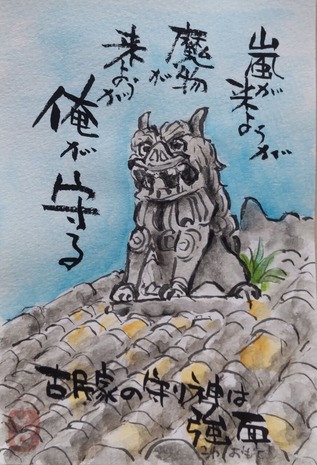 嵐が
来ようが
魔物
が
来ようが
俺が守る
古民家の守り神は
強面